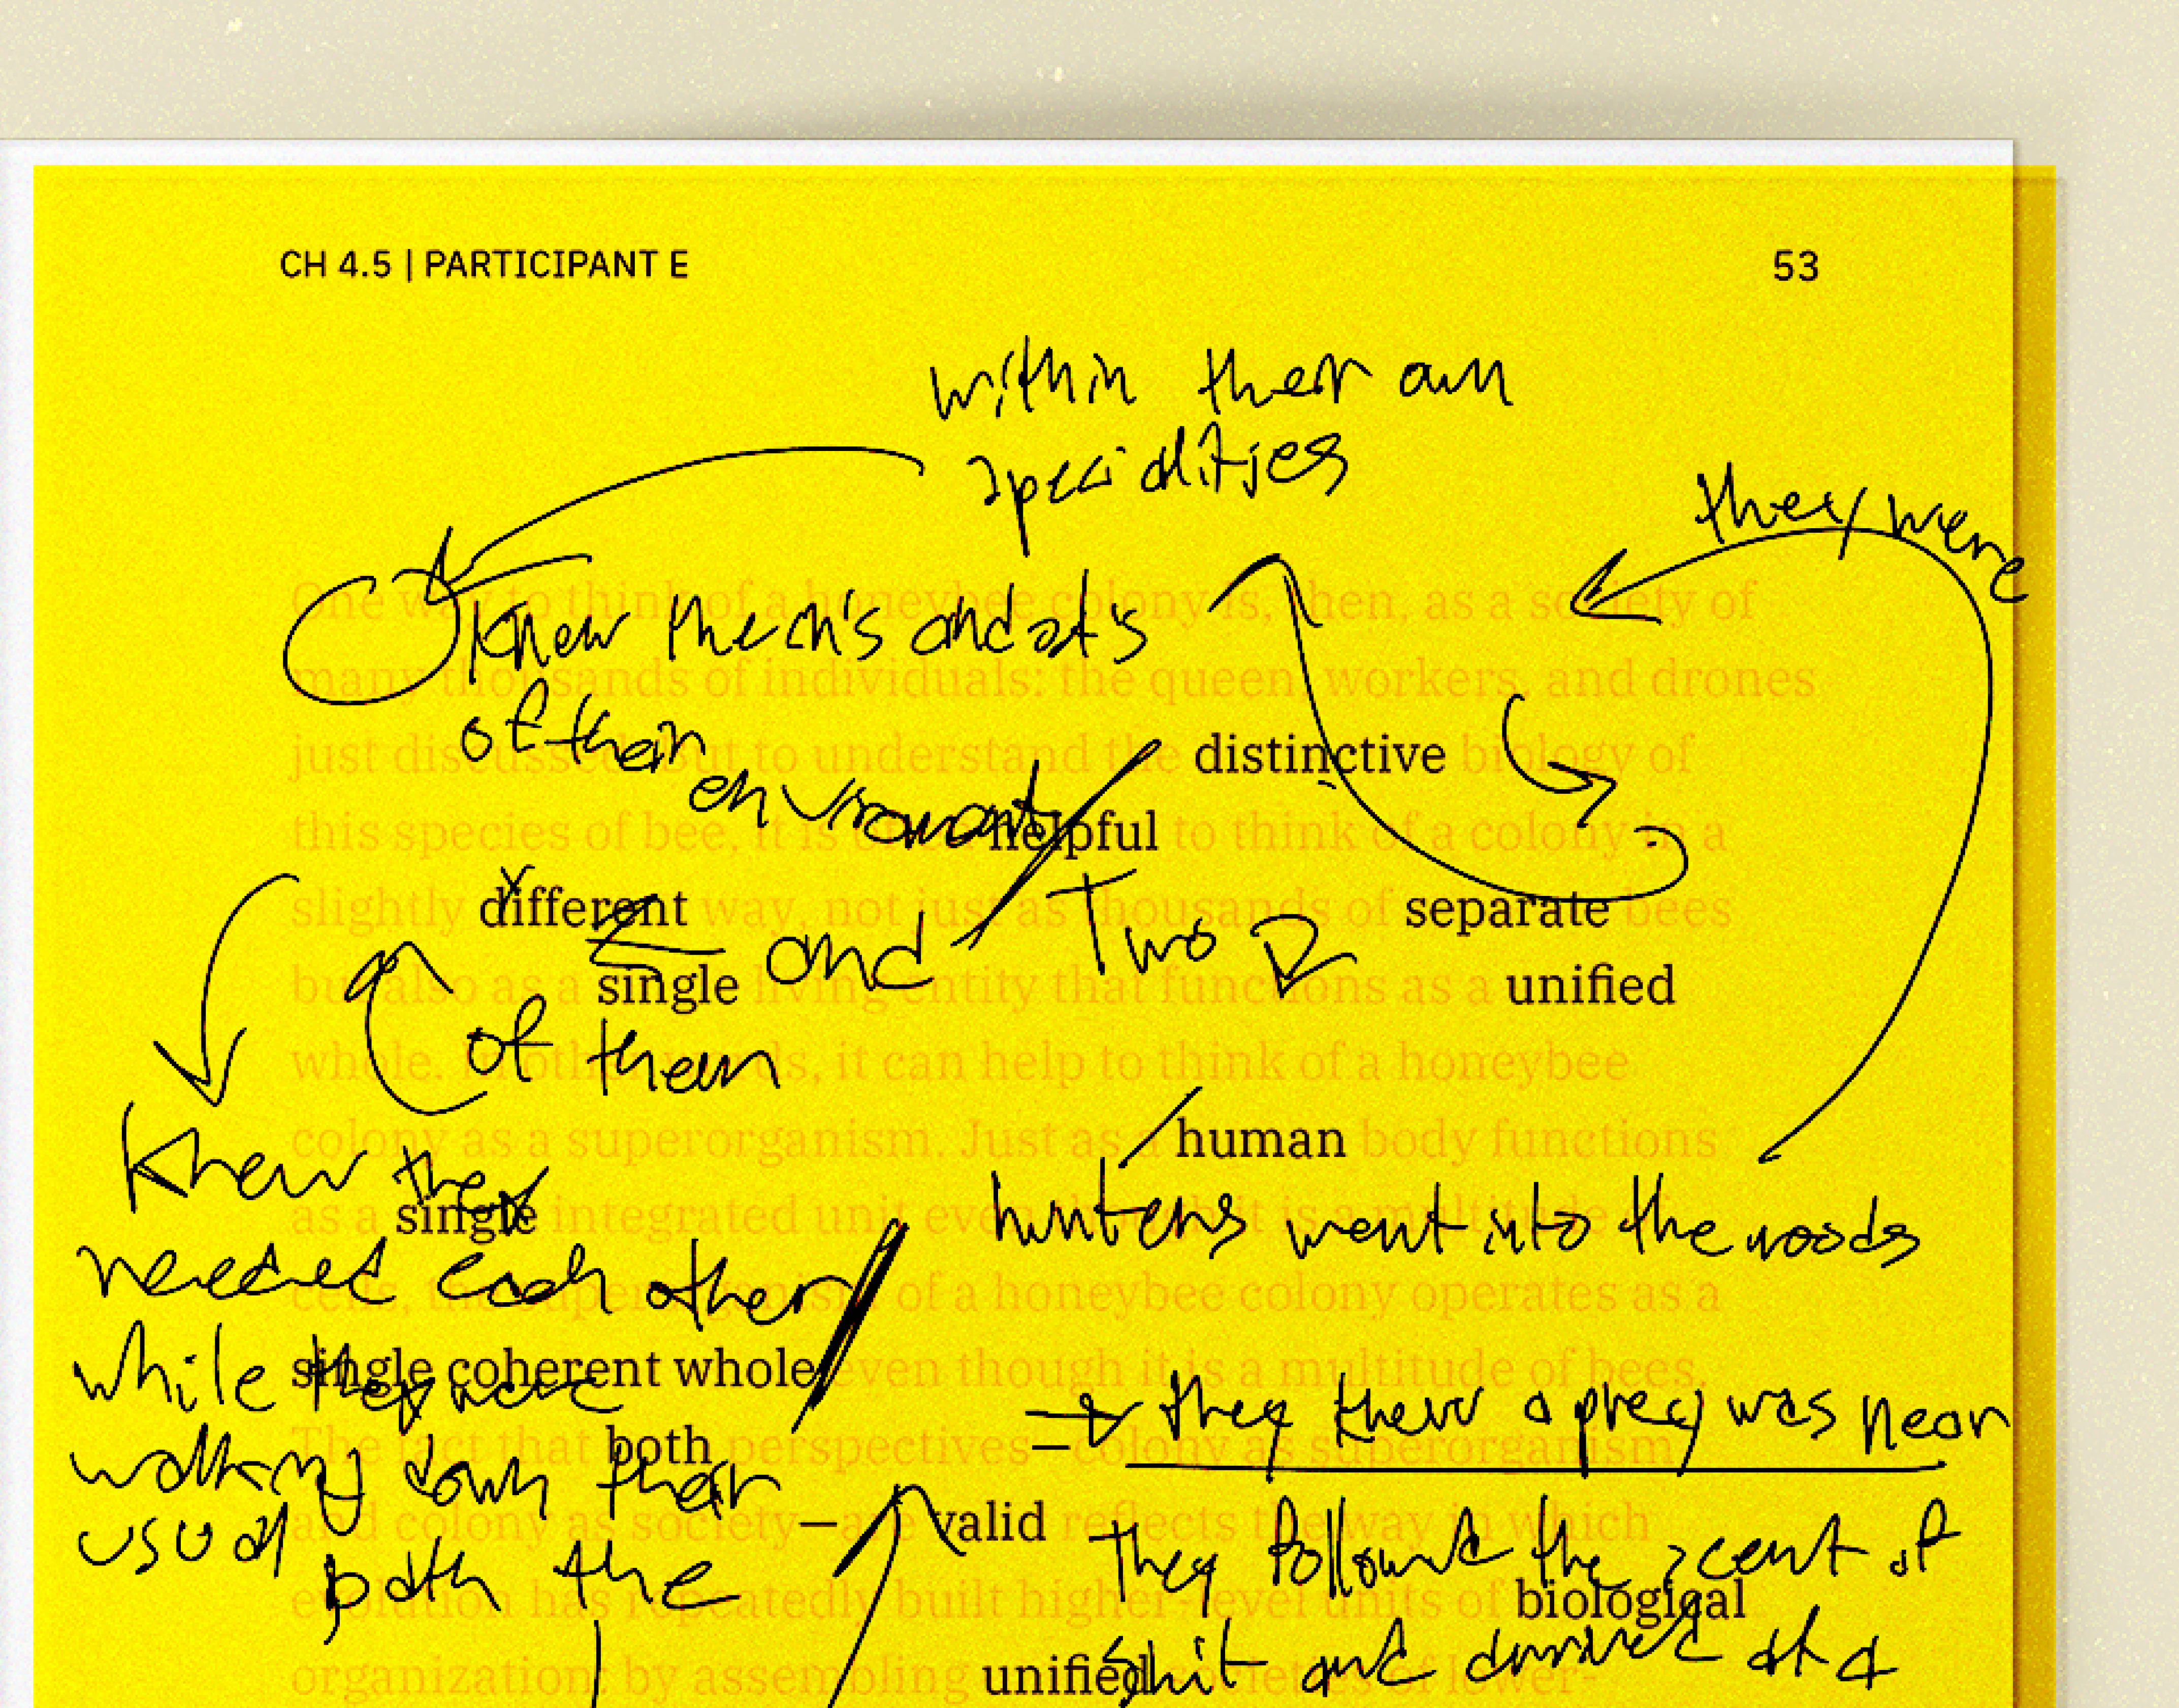 CH 4.5 | PARTICIPANT E 53
within their own
specialities
they were
One way to think of a honeybee colony is, then, as a society of
knew the in's and out's
many thousands of individuals: the queen, workers, and drones
of their
just discussed. But to understand the distinctive biology of
environment
this species of bee, it is helpful to think of a colony in a
slightly different way, not just as thousands of separate bees
and Two
but also as a single living entity that functions as a unified
of them
whole. In other words, it can help to think of a honeybee
colony as a superorganism. Just as a human body functions
knew they
hunters went into the woods
as a single integrated unit even though it is a multitude of
needed each other
cells, the superorganism of a honeybee colony operates as a
while they were
single coherent whole even though it is a multitude of bees.
they knew a prey was near
The fact that both perspectives—colony as superorganism
walking down their
and colony as society—are valid reflects the way in which
usual
They followed the scent of
path the
evolution has repeatedly built higher-level units of biological
shit and arrived at a
organization: by assembling unified societies of lower-